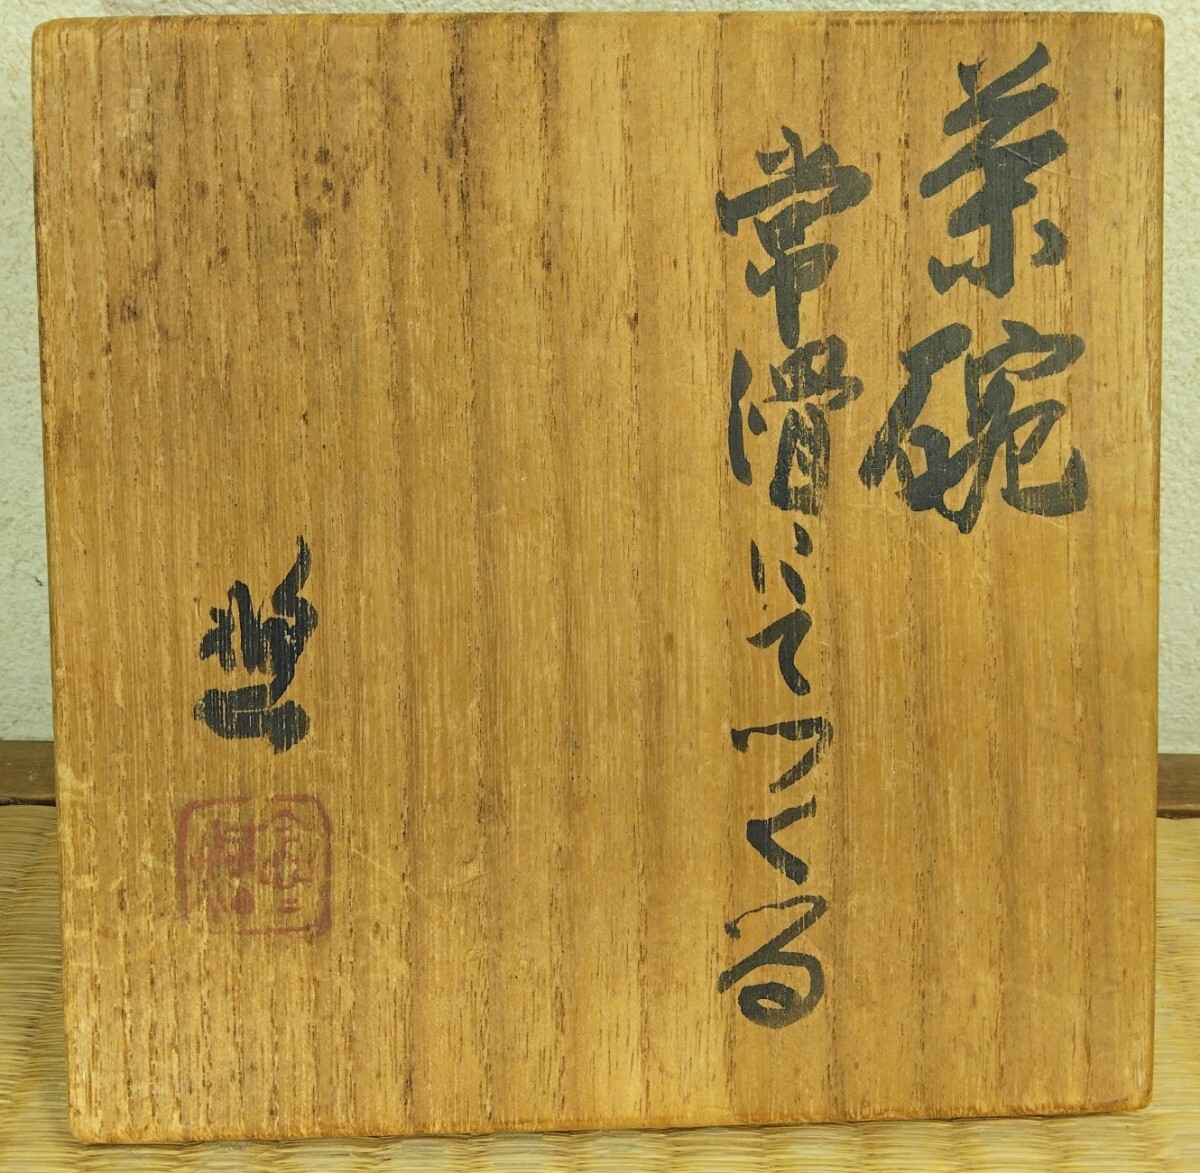 茶碗
常滑にてつくる